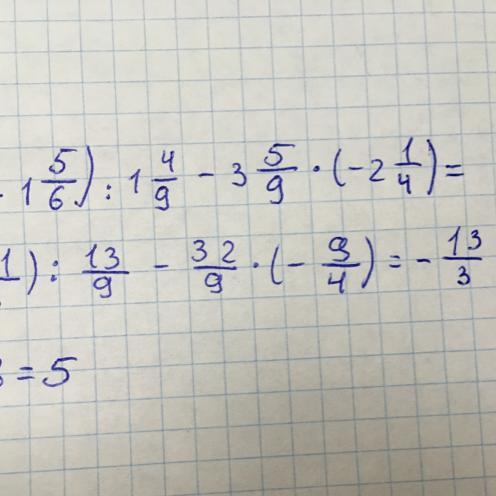 · 1 5/6) : 1 4/9 - 3 5/9 · (-2 1/4) =
1/) : 13/9 - 32/9 · (- 9/4) = - 13/3
= 5